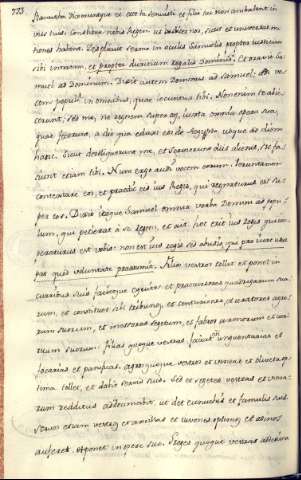 723.
Ramatha dixeruntque ei ecce tu senuisti et filii tui non ambulant in
viis tuis: Constitue nobis Regem ut iudicet nos, sicut et universae na-
tiones habent. Displicuit sermo in oculis Samuelis propter
sibi et propter Et oravit Sa-
muel ad Dominum. Dixit autem Dominus ad Samuel. Audi vo-
cem populi in omnibus, quae loquuntur tibi. Non enim te abie-
cerunt, sed me, ne regnem super eos, iuxta omnia opera sua,
quae fecerunt, a die qua eduxi eos de Aegypto, usque ad diem
hanc. Sicut dereliquerunt me, et servierunt diis alienis, sic fa-
ciunt etiam tibi. Nunc ergo audi vocem eorum. Verumtamen
contestare eos, et praedic eis ius Regis, qui regnaturus est su-
per eos. Dixit itaque Samuel omnia verba Domini ad popu-
lum, qui petierat a se regem, et ait. hoc erit ius Regis qui im-
peraturus est vobis: non est ius regis sed
Filios vestros tollet et ponet in
curribus suis facietque equites et praecursores quadrigarum sua-
rum, et constituet sibi tribunos, et centuriones, et aratores agro-
rum suorum, et messores segetum, et fabros armorum et cur-
ruum suorum. filias quoque vestras faciet sibi unguentarias et
focarias et panificas. agros quoque vestros et vineas et oliveta op-
tima tollet, et dabit servis suis. Sed et segetes vestras et vinea-
rum redditus addecimabit ut det eunuchis et famulis suis.
Servos etiam vestros et ancillas et iuvenes optimos et asinos
auferet. et ponet in opere suo. Greges quoque vestros